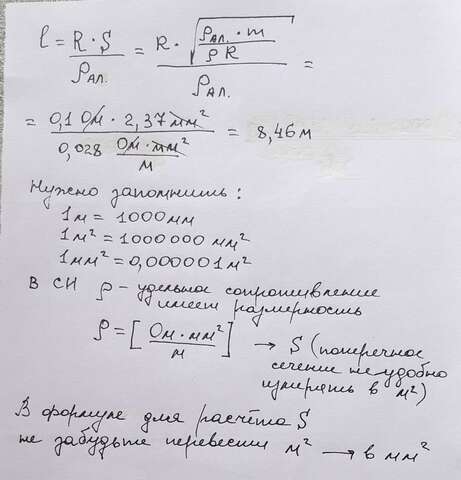 l = R · S / ρ ал. = R · √(ρ ал. · m / ρ R) / ρ ал. =
= 0,1 Ом · 2,37 мм² / 0,028 Ом · мм²/м = 8,46 м
Нужно запомнить:
1 м = 1000 мм
1 м² = 1000 000 мм²
1 мм² = 0,000001 м²
В СИ ρ – удельное сопротивление
имеет размерность
ρ = [Ом · мм² / м] → S (поперечное
сечение не удобно
измерять в м²)
В формуле для расчёта S
не забудьте перевести м² → в мм²